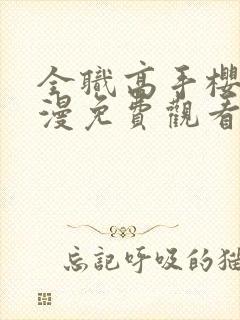 全職高手櫻
漫免費觀看
忘記呼吸的猫